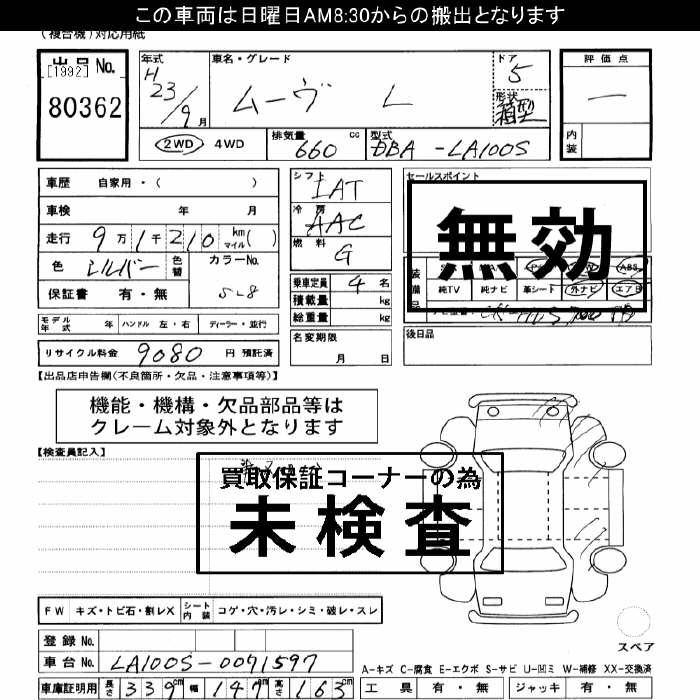 この車両は日曜日AM8:30からの搬出となります
(複合機)対応用紙
出品 No.
[1992]
80362
年式 H 23/9 月
車名・グレード ムーヴ L
ドア 5
形状 箱型
評価点 ―
内装
2WD 4WD
排気量 660 cc
型式 DBA -LA100S
車歴 自家用・( )
車検 年 月
走行 9万1千210 km マイル( )
色 シルバー 色替 カラーNo. S28
保証書 有・無
シフト IAT
冷房 AAC
燃料 G
乗車定員 4 名
積載量 kg
総重量 kg
名変期限
月 日
セールスポイント
無効
ABS
純TV 純ナビ 革シート 外ナビ エアB
後日品
モデル年式 年 ハンドル 左・右 ディーラー・並行
リサイクル料金 9080 円 預託済
【出品店申告欄(不良箇所・欠品・注意事項等)】
機能・機構・欠品部品等は
クレーム対象外となります
【検査員記入】
買取保証コーナーの為
未検査
FW キズ・トビ石・割レX シート内装 コゲ・穴・汚レ・シミ・破レ・スレ
登録 No.
車台 No. LA100S-0071597
スペア
A-キズ C-腐食 E-エクボ S-サビ U-凹ミ W-補修 XX-交換済
車庫証明用 長さ 339 cm 幅 147 cm 高さ 163 cm
工具 有・無 ジャッキ 有・無